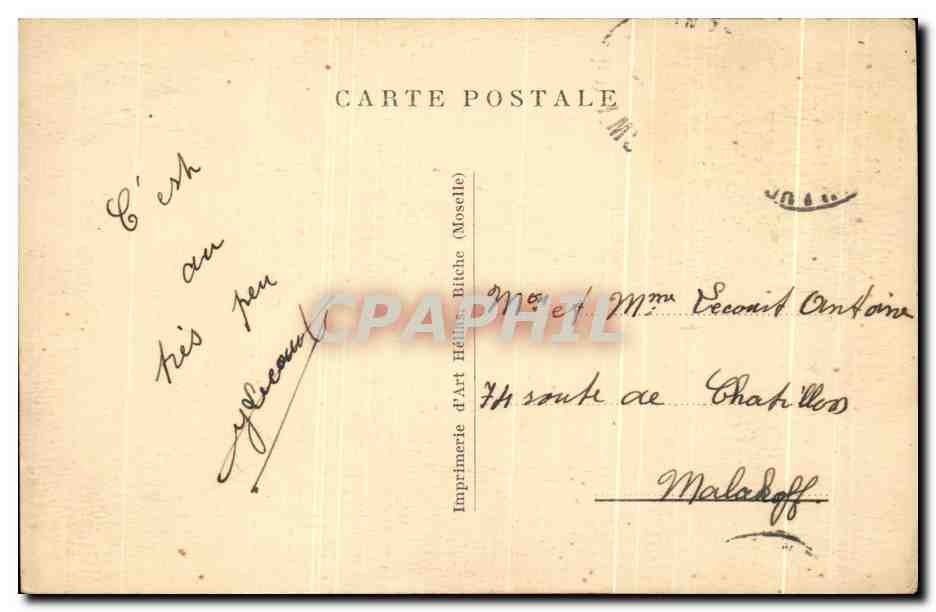 CARTE POSTALE
C'est
au
très peu
YLecomt
Imprimerie d'Art Hélias, Bitche (Moselle)
CPAPHIL
Mr et Mme Lecomt Antoine
74 route de Chatillon
Malakoff